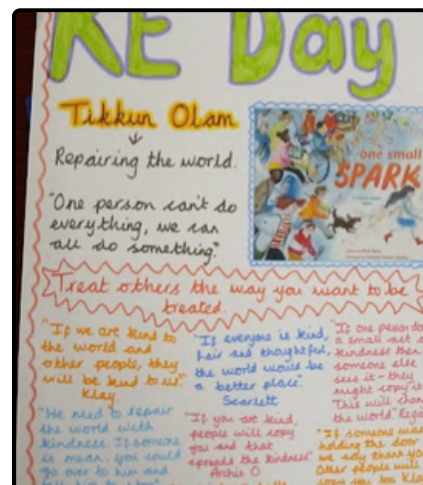 RE Day
Tikkun Olam
Repairing the world.
"One person can't do
everything, we can
all do something."
one small
SPARK
Treat others the way you want to be
treated.
"If we are kind to
the world and
other people, they
will be kind to us."
Klay.
"We need to repair
the world with
kindness. If someone
is mean, you could
go over to him and
"If everyone is kind,
fair and thoughtful,
the world would be
a better place."
Scarlett
"If you are kind,
people will copy
you and that
spreads the kindness"
Archie O
"If one person do
a small act o
kindness then
someone else
sees it - they
might copy it
This will chan
the world" Rega
"If someone was
holding the door
we say thank yo
Other people will
copy you too Klay